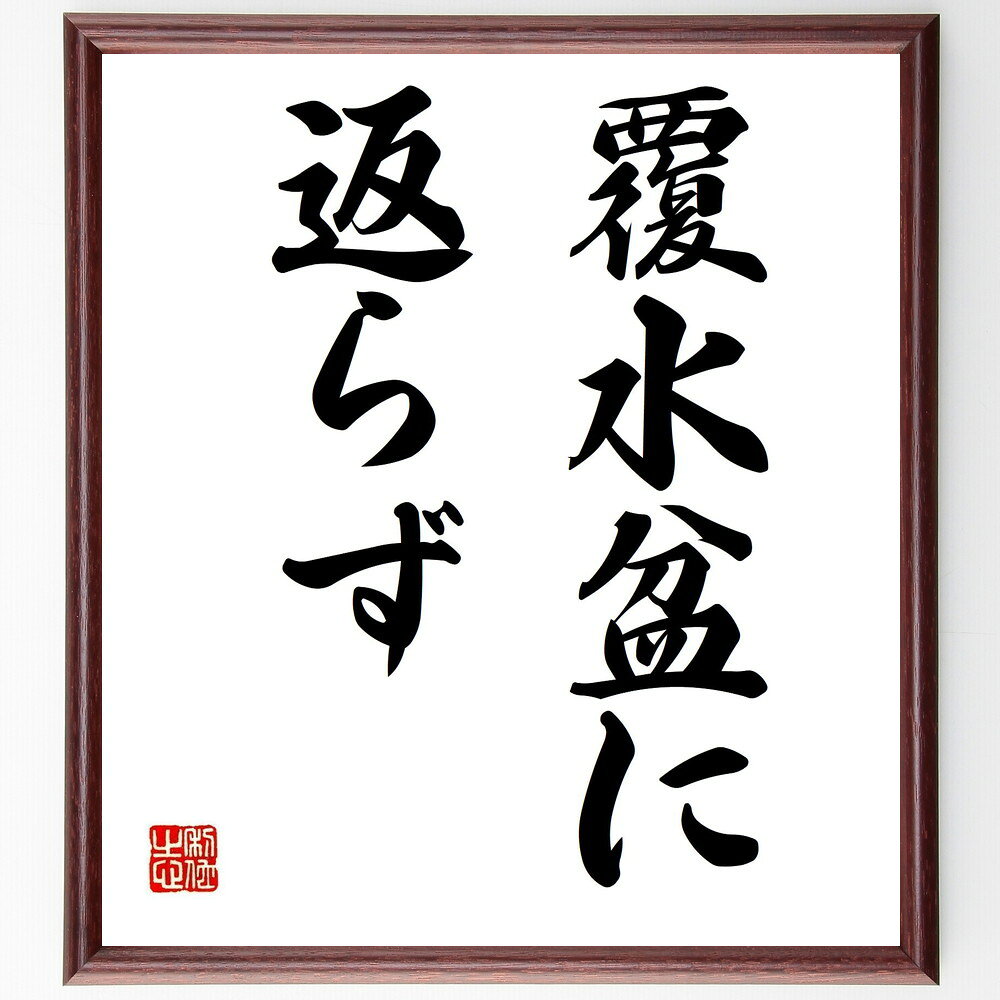 覆水盆に
返らず